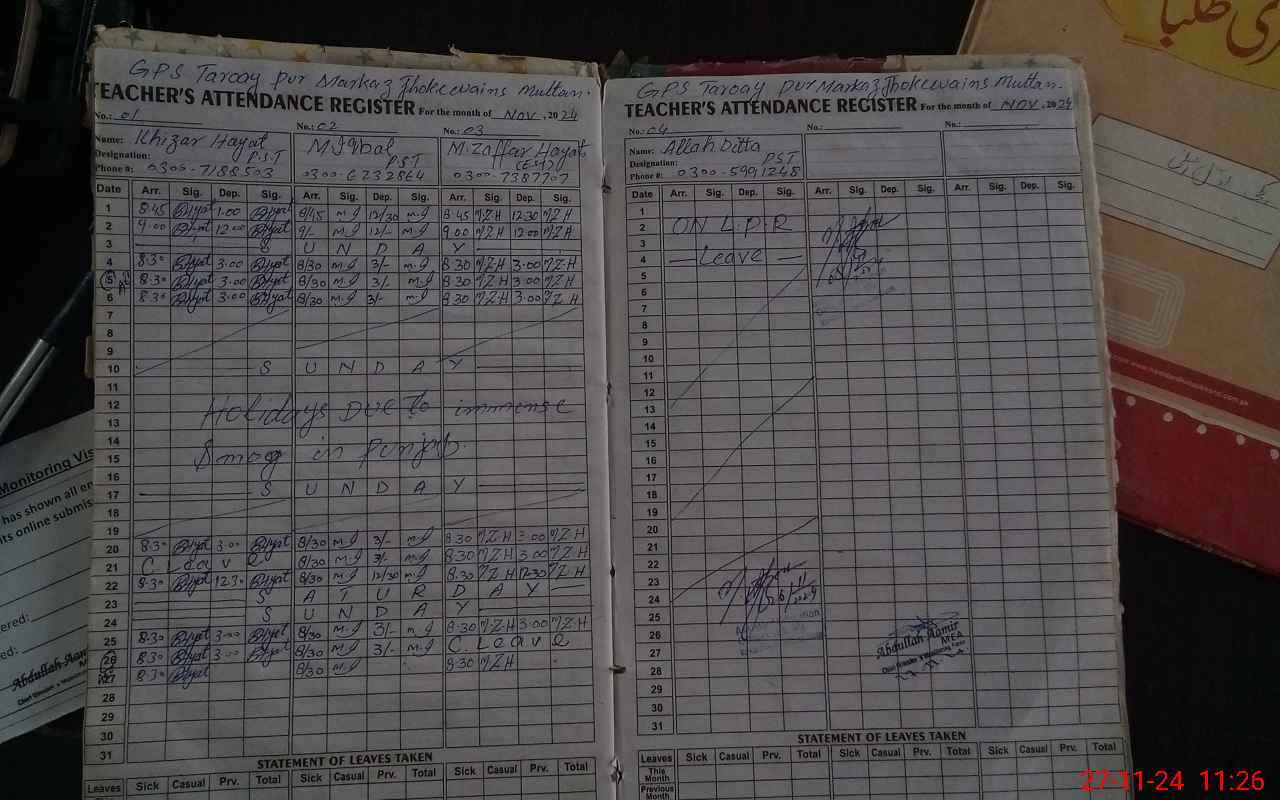 GPS Taroay Pur Markaz Jhokewains Multan.
TEACHER'S ATTENDANCE REGISTER For the month of NOV, 2024
No.: 01 No.: 02 No.: 03
Name: Khizar Hayat M Iqbal M. Zaffar Hayat
Designation: P.S.T PST (EST)
Phone #: 0300-7188503 0300-6732864 0300-7387707
Date Arr. Sig. Dep. Sig. Arr. Sig. Dep. Sig. Arr. Sig. Dep. Sig.
1 8.45 Hayat 1.00 Hayat 8/45 m.I 12/30 m.I 8 45 MZH 12.30 MZH
2 9.00 Hayat 12.00 Hayat 9/- m.I 12/- m.I 9.00 MZH 12.00 MZH
3 S U N D A Y
4 8.30 Hayat 3.00 Hayat 8/30 m.I 3/- m.I 8 30 MZH 3.00 MZH
5 8.30 Hayat 3.00 Hayat 8/30 m.I 3/- m.I 8 30 MZH 3.00 MZH
6 8.30 Hayat 3.00 Hayat 8/30 m.I 3/- m.I 8 30 MZH 3.00 MZH
7
8
9
10 S U N D A Y
11
12 Holidays DUE to immense
13
14 Smog in Punjab.
15
16
17 S U N D A Y
18
19
20 8.30 Hayat 3.00 Hayat 8/30 m.I 3/- m.I 8.30 MZH 3.00 MZH
21 C. Leave 8/30 m.I 3/- m.I 8.30 MZH 3.00 MZH
22 8.30 Hayat 12.30 Hayat 8/30 m.I 12/30 m.I 8.30 MZH 12.30 MZH
23 S A T U R D A Y
24 S U N D A Y
25 8.30 Hayat 3.00 Hayat 8/30 m.I 3/- m.I 8.30 MZH 3.00 MZH
26 8.30 Hayat 3.00 Hayat 8/30 m.I 3/- m.I C. Leave
27 8.30 Hayat 8/30 m.I 8.30 MZH
28
29
30
31
STATEMENT OF LEAVES TAKEN
Leaves Sick Casual Prv. Total Sick Casual Prv. Total Sick Casual Prv. Total
GPS Taroay Pur Markaz Jhokewains Multan.
TEACHER'S ATTENDANCE REGISTER For the month of NOV, 2024
No.: 04 No.: No.:
Name: Allah Ditta
Designation: PST
Phone #: 0300-5991248
Date Arr. Sig. Dep. Sig. Arr. Sig. Dep. Sig. Arr. Sig. Dep. Sig.
1
2 ON L.P.R
3
4 Leave
5
6
7
8
9
10
11
12
13
14
15
16
17
18
19
20
21
22
23
24
25
26
27
28
29
30
31
Abdullah Aamir
MEA
STATEMENT OF LEAVES TAKEN
Leaves Sick Casual Prv. Total Sick Casual Prv. Total Sick Casual Prv. Total
This Month
Previous Month
Monitoring Vis
has shown all en
its online submis
ered:
ed:
Abdullah Aami
27-11-24 11:26